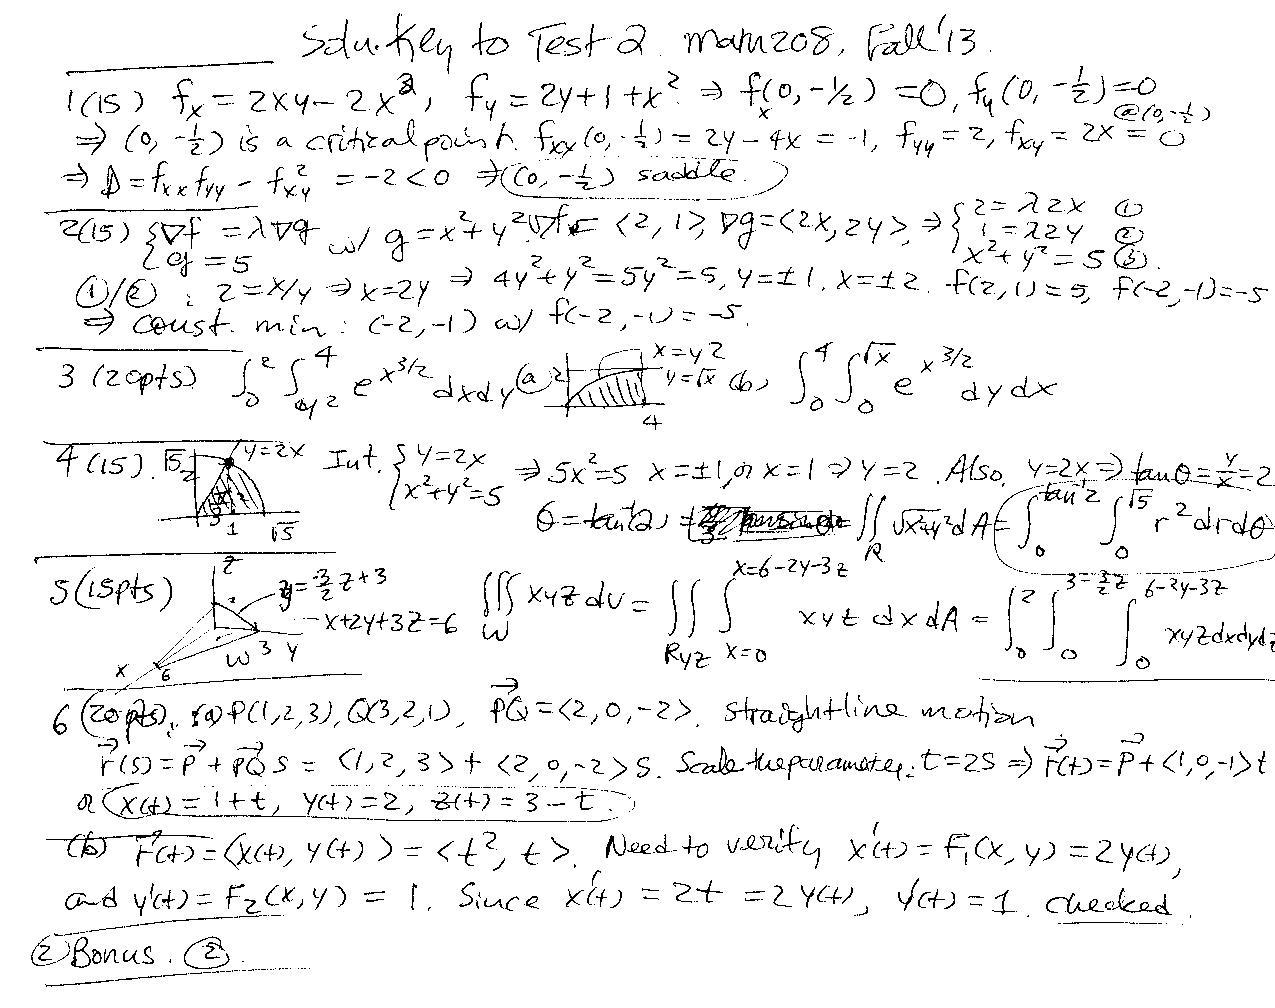 Soln. Key to Test 2 Math 208, Fall '13.
1 (15) f_x = 2xy - 2x², f_y = 2y + 1 + x² ⇒ f_x(0, -1/2) = 0, f_y(0, -1/2) = 0
⇒ (0, -1/2) is a critical point. f_xx(0, -1/2) = 2y - 4x = -1, f_yy = 2, f_xy = 2x = 0 @(0, -1/2)
⇒ D = f_xx f_yy - f_xy² = -2 < 0 ⇒ (0, -1/2) saddle.
2 (15) { ∇f = λ∇g w/ g = x² + y² ∇f = <2, 1>, ∇g = <2x, 2y>, ⇒ { 2 = λ2x ①
g = 5 1 = λ2y ②
x² + y² = 5 ③.
①/② : 2 = x/y ⇒ x = 2y ⇒ 4y² + y² = 5y² = 5, y = ±1, x = ±2. f(2, 1) = 5, f(-2, -1) = -5
⇒ const. min : (-2, -1) w/ f(-2, -1) = -5.
3 (20pts) ∫_0^2 ∫_{y²}^4 e^{x^{3/2}} dxdy (a) 2 x = y² y = √x 4 (b) ∫_0^4 ∫_0^{√x} e^{x^{3/2}} dy dx
4 (15). √5 2 y = 2x 1 √5 Int. { y = 2x x² + y² = 5 ⇒ 5x² = 5 x = ±1, or x = 1 ⇒ y = 2. Also, y = 2x ⇒ tanθ = y/x = 2
θ = tan⁻¹(2) = ∬_R √(x²+y²) dA = ∫_0^{tan⁻¹2} ∫_0^{√5} r² dr dθ
5 (15pts) z 2 y = -3/2 z + 3 x + 2y + 3z = 6 W 3 y x 6 ∭_W xyz dv = ∬_{Ryz} ∫_{x=0}^{x=6-2y-3z} xyz dx dA = ∫_0^2 ∫_0^{3-3/2 z} ∫_0^{6-2y-3z} xyz dxdydz
6 (20pts). (a) P(1,2,3), Q(3,2,1), PQ→ = <2, 0, -2>. Straight line motion
r→(s) = P→ + PQ→ s = <1, 2, 3> + <2, 0, -2> s. Scale the parameter: t = 2s ⇒ r→(t) = P→ + <1, 0, -1> t
or x(t) = 1 + t, y(t) = 2, z(t) = 3 - t.
(b) r→(t) = <x(t), y(t)> = <t², t>. Need to verify x'(t) = F₁(x, y) = 2y(t),
and y'(t) = F₂(x, y) = 1. Since x'(t) = 2t = 2y(t), y'(t) = 1. checked.
② Bonus. ②.